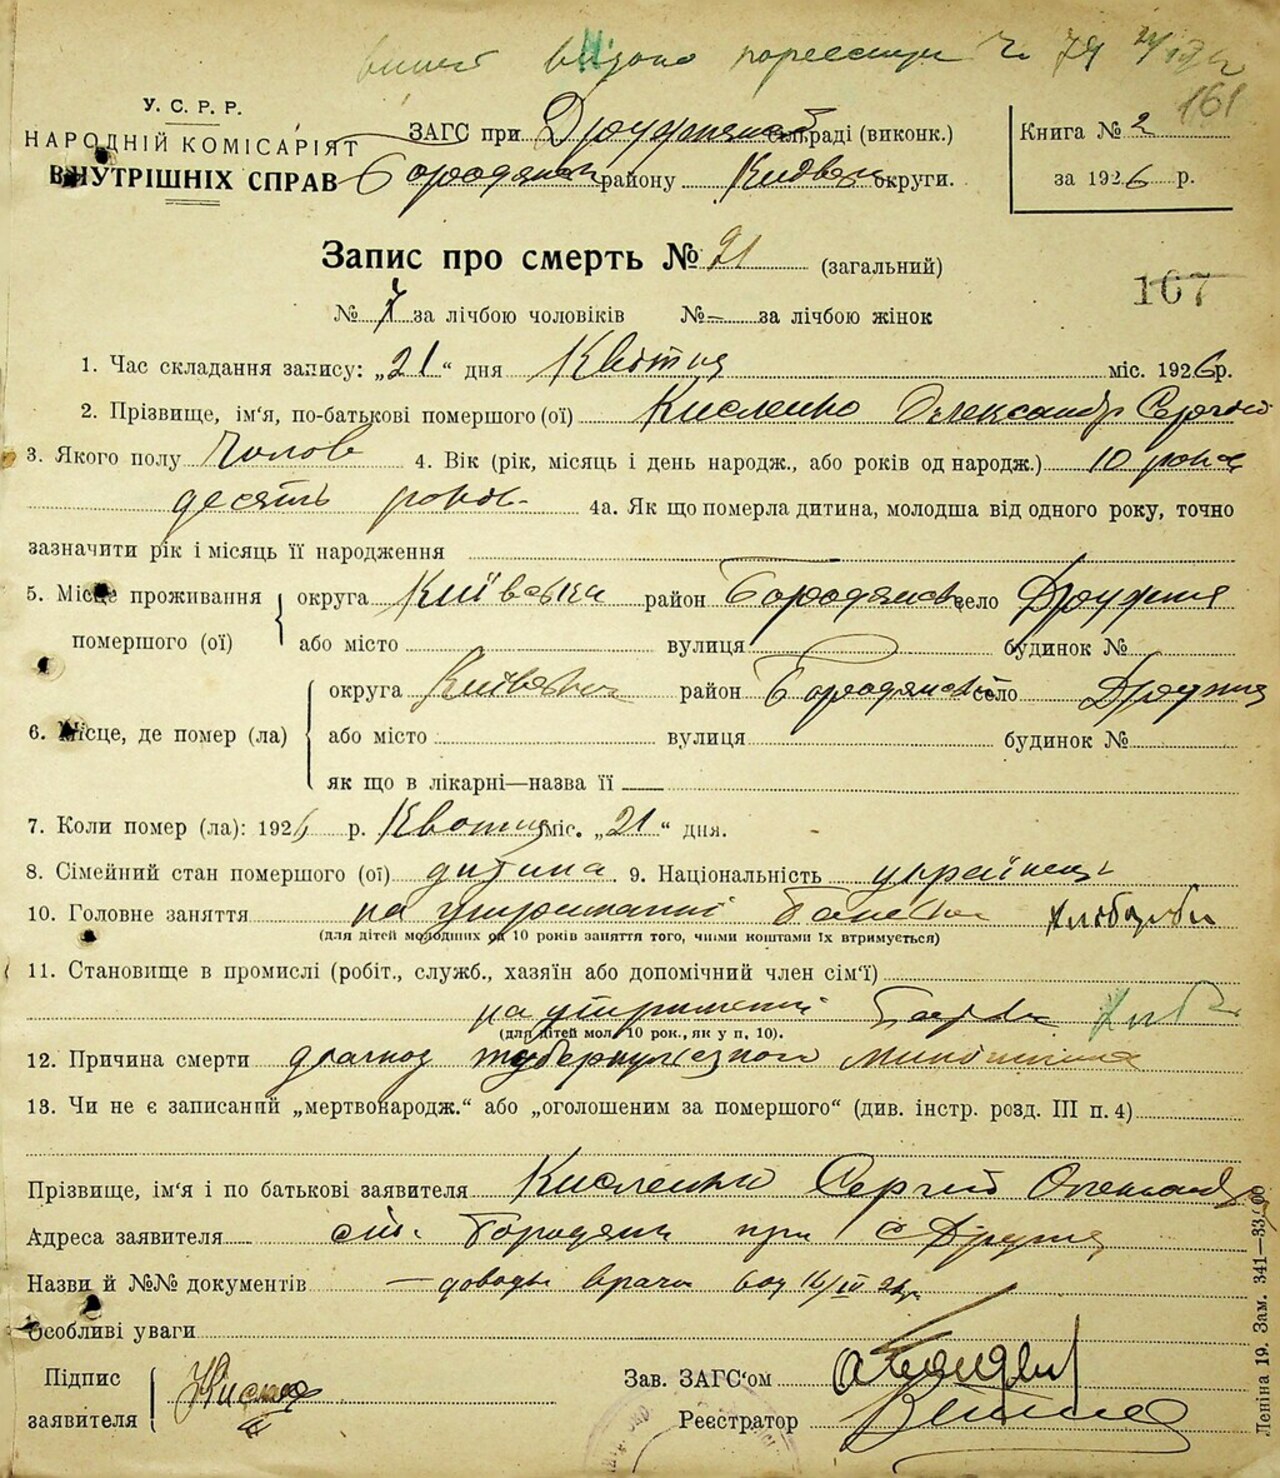 161
У. С. Р. Р.
НАРОДНІЙ КОМІСАРІЯТ
ВНУТРІШНІХ СПРАВ
ЗАГС при Дружнянськ сельраді (виконк.)
Бородянськ району Київськ округи.
Книга № 2
за 1926 р.
Запис про смерть № 21 (загальний)
167
№ 7 за лічбою чоловіків №–за лічбою жінок
1. Час складання запису: „21“ дня Квітня міс. 1926 р.
2. Прізвище, ім‘я, по-батькові помершого (ої) Кисленко Олександр Сергійов
3. Якого полу Чолов 4. Вік (рік, місяць і день народж., або років од народж.) 10 років
десять років 4а. Як що померла дитина, молодша від одного року, точно
зазначити рік і місяць її народження
5. Місце проживання помершого (ої)
округа Київська район Бородянськ село Дружня
або місто вулиця будинок №
6. Місце, де помер (ла)
округа Київська район Бородянський село Дружня
або місто вулиця будинок №
як що в лікарні—назва її
7. Коли помер (ла): 1926 р. Квітня міс. „21“ дня.
8. Сімейний стан помершого (ої) дитина 9. Національність українець
10. Головне заняття на утриманні батька хлібороби
(для дітей молодших од 10 років заняття того, чиїми коштами їх втримується)
11. Становище в промислі (робіт., служб., хазяїн або допомічний член сім‘ї)
на утриманні батька
(для дітей мол. 10 рок., як у п, 10).
12. Причина смерти діагноз туберкульозного минінгита
13. Чи не є записаний „мертвонародж.“ або „оголошеним за помершого“ (див. інстр. розд. III п. 4)
Прізвище, ім‘я і по батькові заявителя Кисленко Сергій Олександ
Адреса заявителя ст. Бородянк при с Дружня
Назви й №№ документів — врача від 16/IV 26 р.
Особливі уваги
Підпис заявителя
Зав. ЗАГС‘ом
Реєстратор
Леніна 19. Зам. 341—33.00